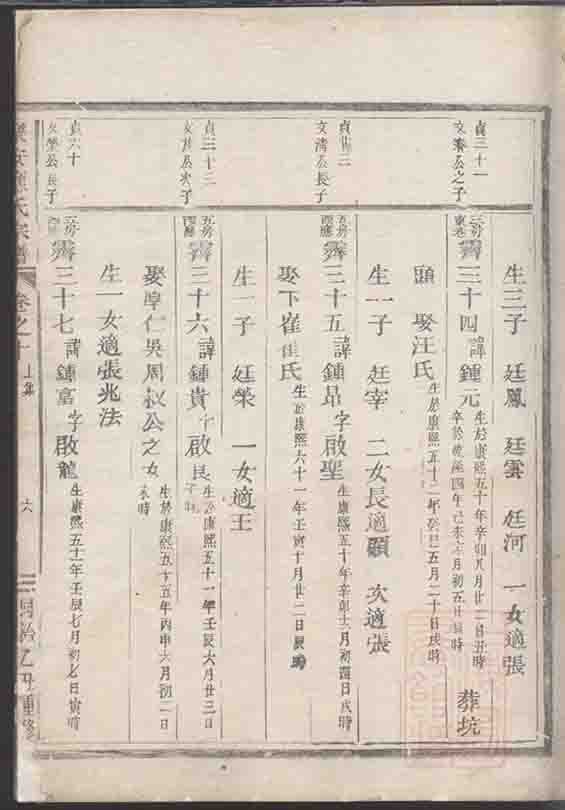 貞三十一
文泰公之子
貞卅三
文清公長子
貞三十三
文長子
貞六十
文榮公長子
生三子 廷鳳 廷雲 廷河 一女適張
三房
東巷
霽三十四 諱鍾元 生於康熙五十年辛卯八月廿二日丑時
卒於乾隆四年己未六月初五日時 葬坑
頭 娶汪氏 生於康熙五十二年癸巳五月二十日戌時
生一子 廷宰 二女長適顧 次適張
五房
西廳
霽三十五 諱鍾昂 字啟聖 生康熙五十年辛卯十月初四日戌時
娶下崔崔氏 生於康熙六十一年壬寅十月廿二日辰時
生一子 廷榮 一女適王
五房
西廳
霽三十六 諱鍾貴 字啟良 生於康熙五十一年壬辰六月廿三日
子時
娶厚仁吳周叔公之女 生於康熙五十五年丙申六月初二日
未時
生一女適張兆法
三房
霽三十七 諱鍾富 字啟龍 生康熙五十一年壬辰七月初七日寅時
氏宗譜 卷之十 上集 六 同治乙丑重修